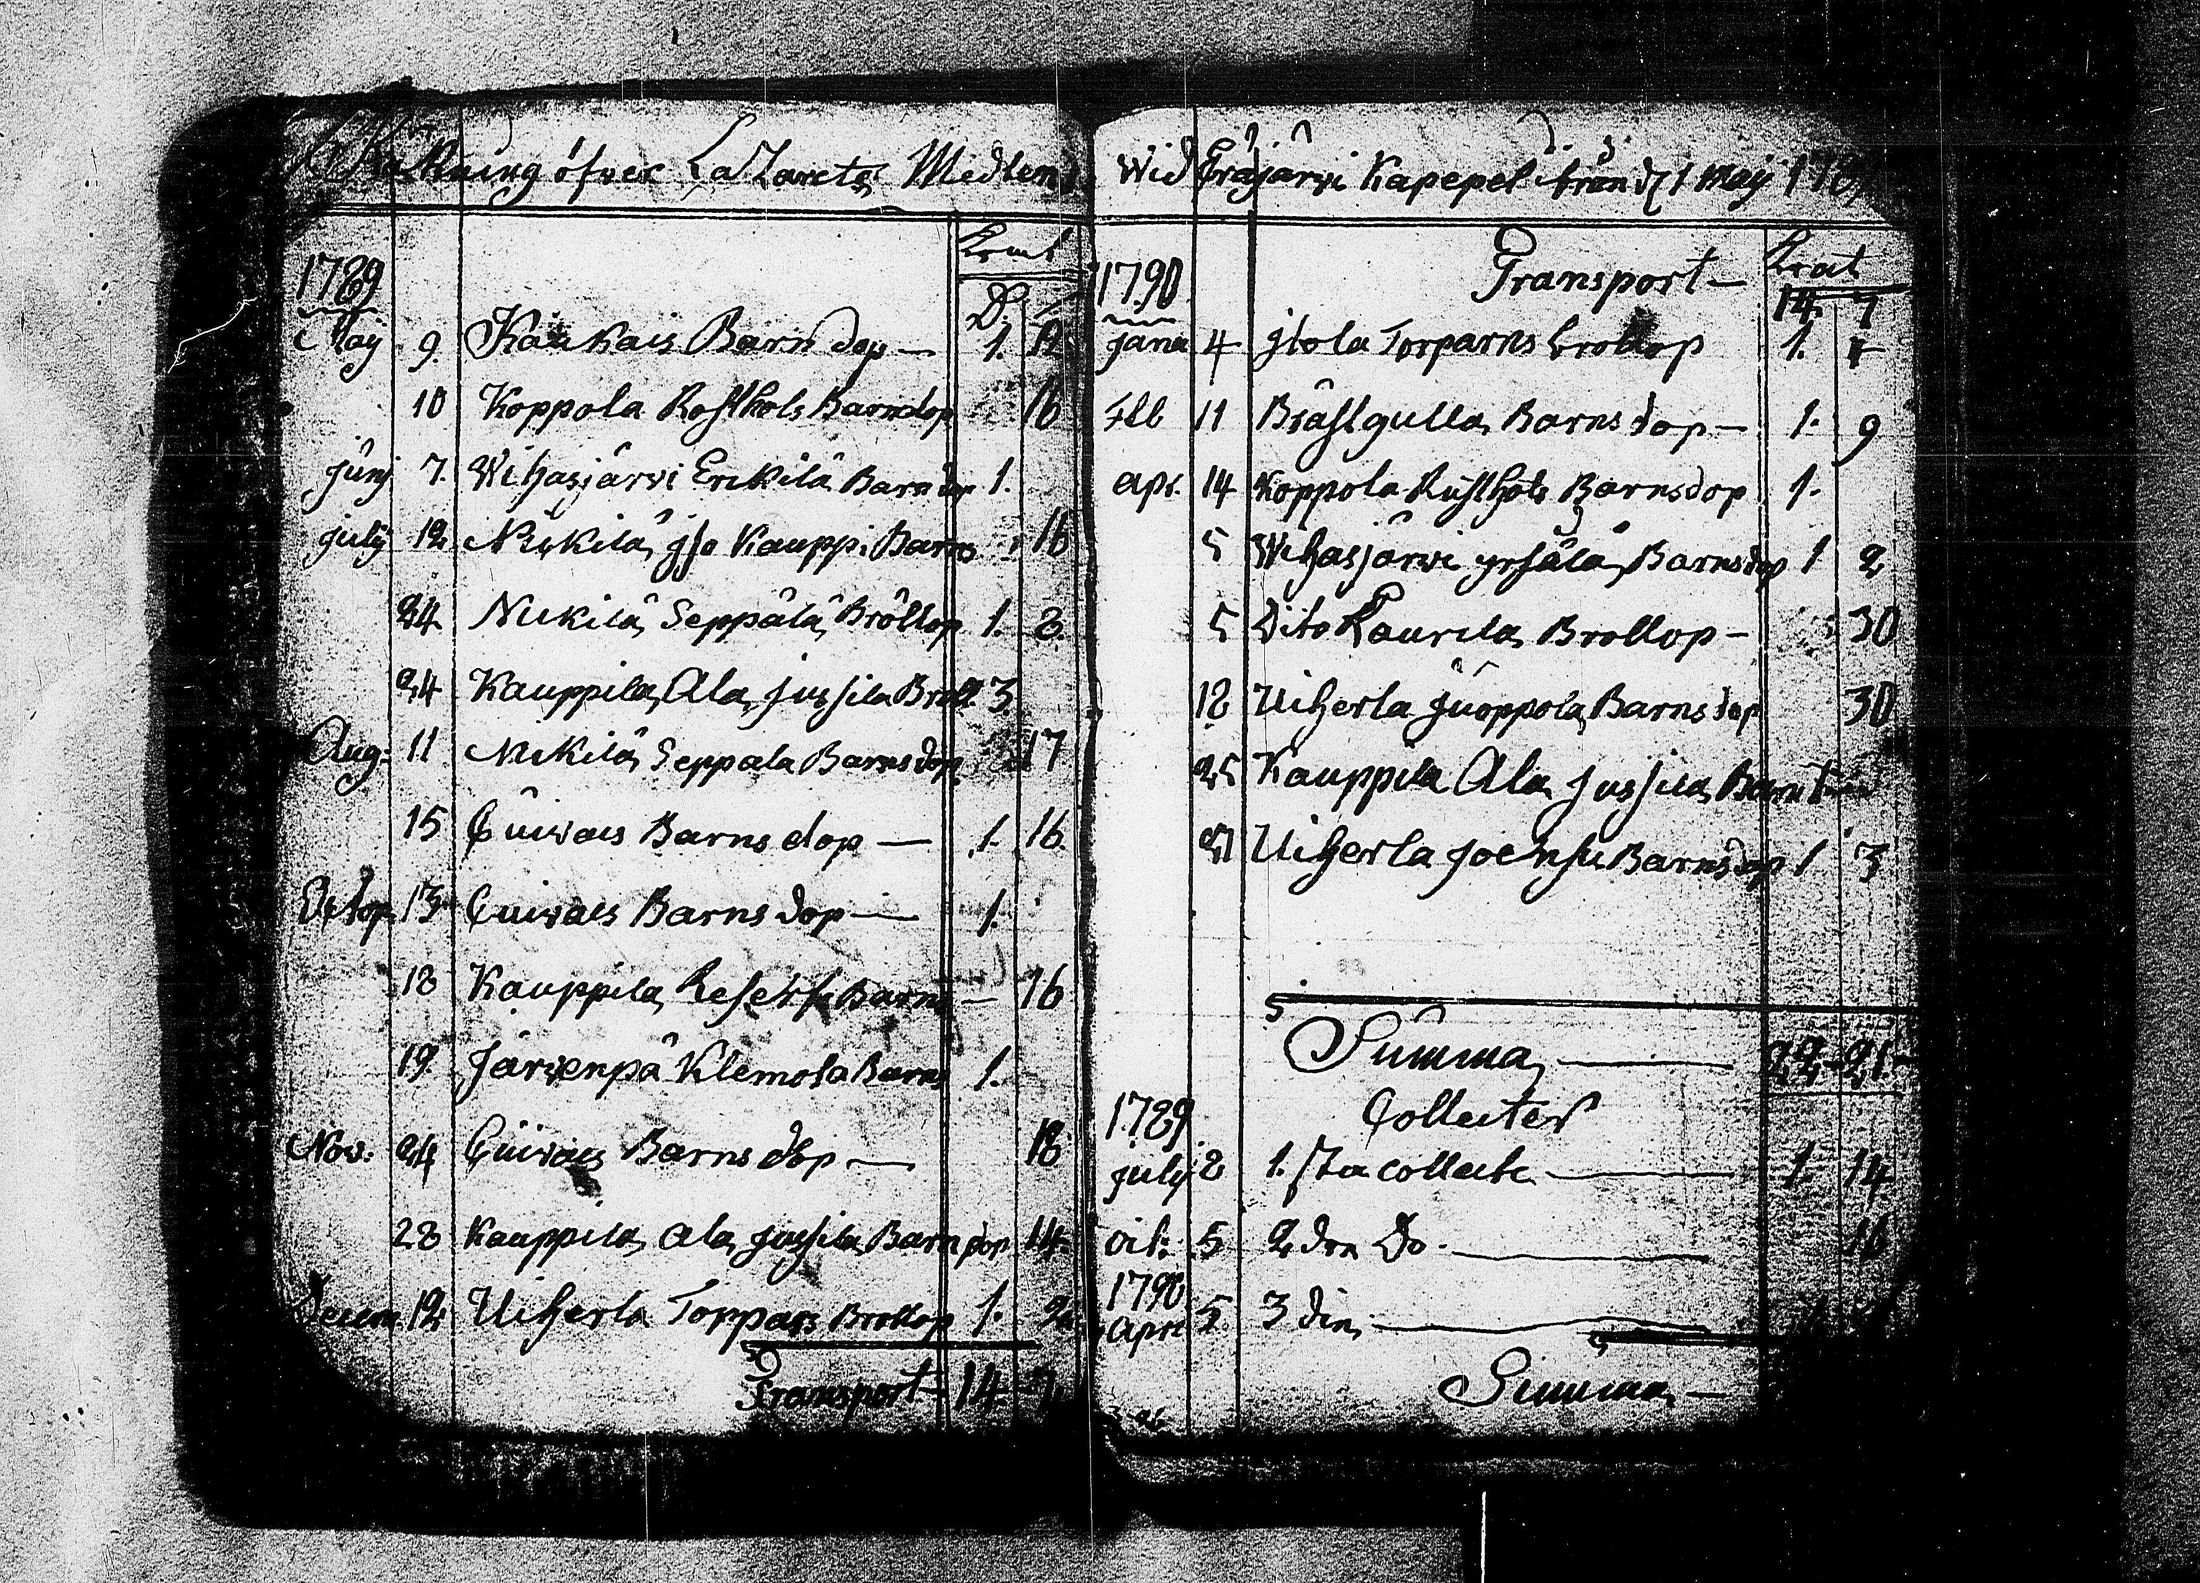 Räkning öfwer Lazarets Medlen
1789 Krat
D.
Maij 9. Kaukais Barn dop — 1. 12
10 Koppola Rosthols Barndop 16
Junij 7. Wihasjärwi Erikilä Barn dop 1.
july 12 Nukilä jso Kauppi Barns 16
24 Nukilä Seppälä Bröllop 1. 8.
24 Kauppila Ala jussila Bröll. 3.
Aug: 11 Nukilä Seppala Barnsdop 17
15 Cuiwais Barns dop — 1. 16.
Octop 13 Cuiwais Barns dop — 1.
18 Kauppila Barns — 16
19. Järwenpä Klemola Barns 1.
Nov: 24 Cuiwais Barns dop — 18
28 Kauppila Ala Jussila Barn dop 14.
Decem 12 Uiherla Toppars Brollop 1. 2
Transport — 14 7
wid Eräjärwi Kapepel från d. 1 Maij
1790 Transport — Krat
14. 7
jana 4 jsola Torparns Brollop 1.
Feb 11 Brästgulla Barns dop — 1. 9
apr. 14 Koppola Rusthols Barnsdop 1.
5 Wihasjärwi yrjälä Barnsdop 1 2
5 Dito Laurila Brollop — 30
18 Uiherla Juoppola Barns dop 30
25 Kauppila Ala Jussila Barns
27 Uiherla Joensu Barnsdop 1 3
Summa — 22 21
Collecter
1789
july 2 1. sta collect — 1. 14
oct: 5 2 dra Do. — 16
1790
apri 5 3 din —
Summa —